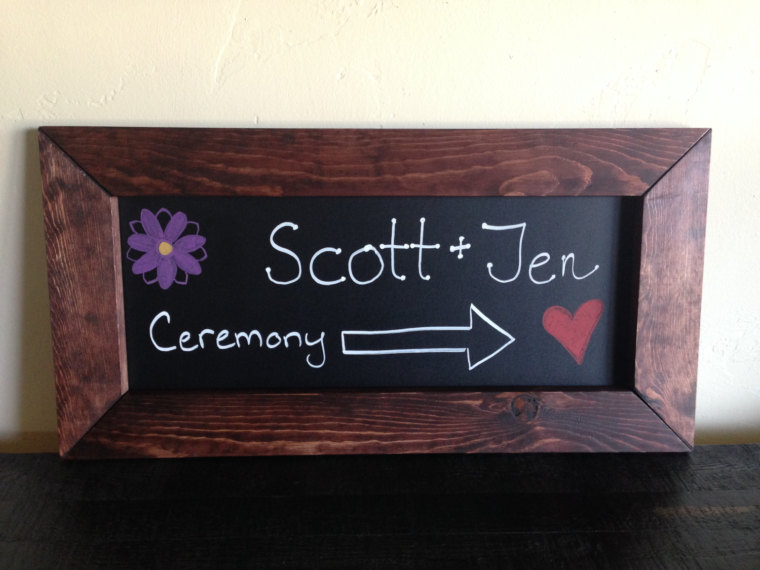 Scott + Jen
Ceremony